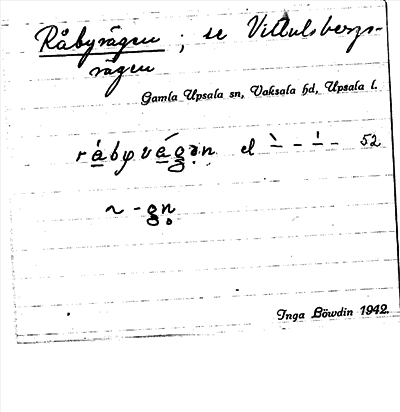 Råbyvägen ; se Vittulsbergs-
vägen
Gamla Upsala sn, Vaksala hd, Upsala l.
råbyvägən el `- - '- - 52
~ -gn̥
Inga Löwdin 1942.